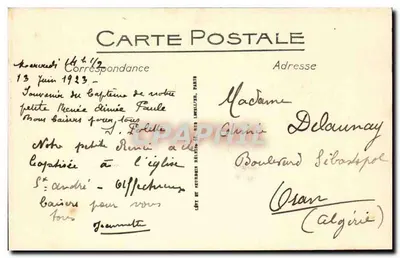 CARTE POSTALE
Correspondance
Adresse
Mercredi 14h 1/2
13 Juin 1923 –
Souvenir du Baptême de notre
petite Renée Aimée Paule
Bons baisers pour tous
J. Lolette
Notre petite Renée a été
baptisée à l'église
St André – Affectueux
baisers pour vous
tous
Jeannette
Madame
Delaunay
Boulevard Sébastopol
Oran
(Algérie)